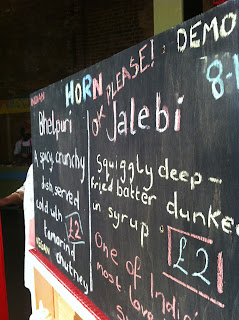 INDIAN
HORN
OK PLEASE!
DEMO
Bhelpuri
A spicy, crunchy
dish, served
cold with £2
tamarind
VEGAN chutney
Jalebi
Squiggly deep-
fried batter dunke
in syrup.
£2
One of India
most love